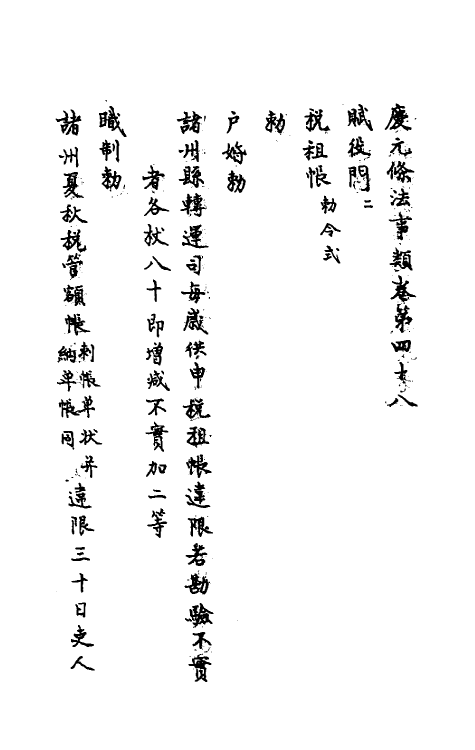 慶元條法事類卷第四十八
賦役門二
税租帳勑令式
勑
户婚勑
諸州縣轉運司每歲供申税租帳違限若勘驗不實
者各杖八十即增减不實加二等
職制勑
諸州夏秋税管額帳刺帳單狀并納畢帳同違限三十日吏人